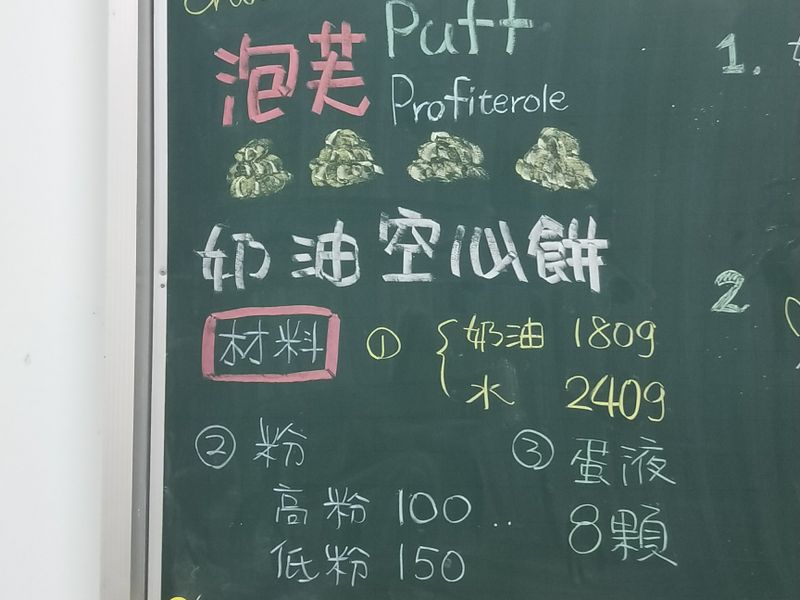 泡芙 Puff
Profiterole
奶油空心餅
材料 ① { 奶油 180g
水 240g
② 粉
高粉 100 ..
低粉 150
③ 蛋液
8顆
1.
2